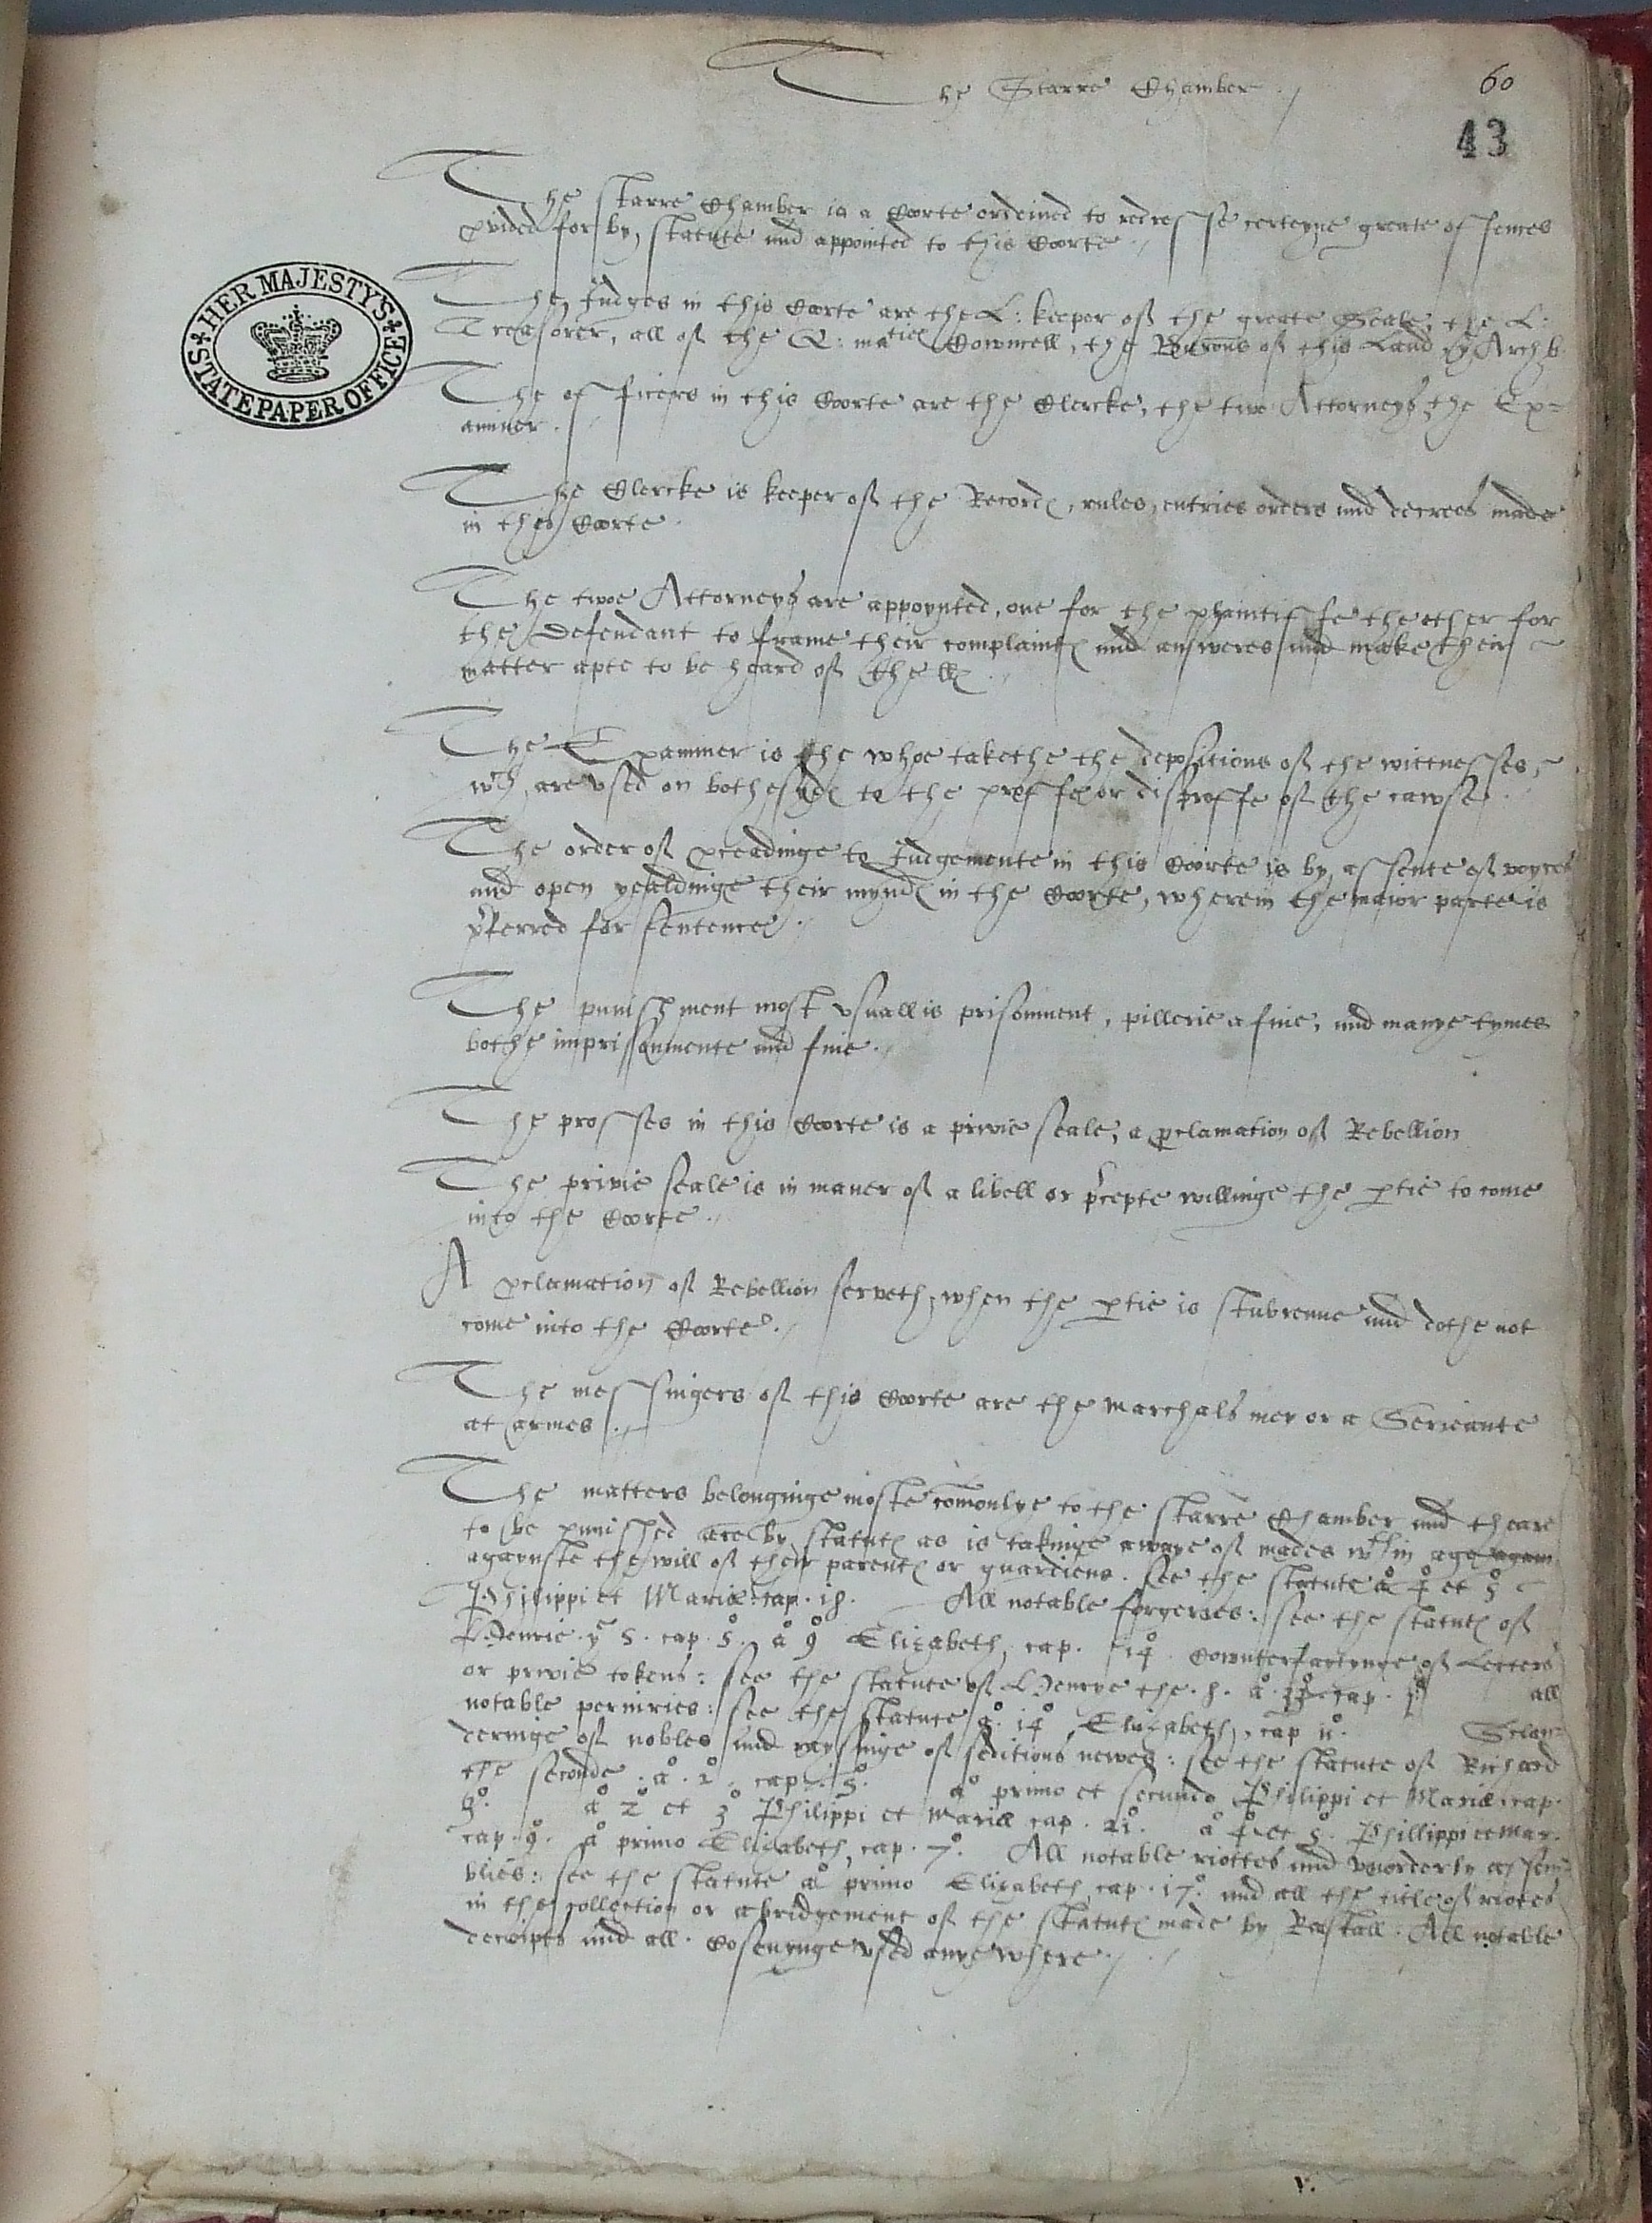 The Starre Chamber
60
43
HER MAJESTY'S STATE PAPER OFFICE
The starre Chamber is a Coorte ordeined to redresse certeyne greate offences
pvided for by statute and appointed to this Coorte
The Judges in this Coorte are the L: keeper of the greate Seale, the L:
Treasorer, all of the Q: maties Cowncell, the Barons of this Land by Archb
The officers in this Coorte are the Clercke, the two Attorneys the Ex=
aminer.
The Clercke is keeper of the Records, rules, entries orders and decrees made
in this Coorte.
The twoe Attorneys are appoynted, one for the plaintiffe the other for
the Defendant to frame their complaints and answeres and make their
matter apte to be heard of the lls
The Examiner is the whoe takethe the depositions of the wittnesses,
wch are vsed on bothe syds to the proffe or disproffe of the cawse.
The order of pceadinge to Judgemente in this Coorte is by assente of voyces
and open yealdinge their mynds in the Coorte, wherein the maior parte is
pferred for sentence
The punishment most vsuall is prisonment, pillerie a fine, and manye tymes
bothe imprissonmente and fine.
The prosses in this Coorte is a privie seale, a pclamation of Rebellion
The privie seale is in maner of a libell or pcepte willinge the ptie to come
into the Coorte.
A pclamation of Rebellion serveth, when the ptie is stubrenne and dothe not
come into the Coorte.
The messingers of this Coorte are the marchals men or a Serieante
at armes.
The matters belonginge moste comonlye to the starre Chamber and theare
to be punished are by statuts as is takinge awaye of mades wthin age again
agaynste the will of their parents or guardiens. see the statute ao 4o et 5
Philippi et Mariæ cap. i8. All notable forgeryes: see the statuts of
Henrie ye 5. cap. 5. ao 9o Elizabeth, cap. i4o. Cownterfaytynge of Letters
or privie tokens: see the statute of Henrye the. 8. ao. 33 cap. 1o all
notable periuries: see the statute ao. i4o. Elizabeth, cap 11o. Sclan=
deringe of nobles and raysinge of seditious newes: see the statute of Richard
the seconde. ao. 2o. cap. 5o. ao primo et secundo Philippi et Mariæ cap.
ao 2o et 3o Philippi et Mariæ cap. 21o. ao 4o et 5o. Phillippi et Mar.
cap. 9o. ao primo Elizabeth, cap. 7o. All notable riottes and vnorderly assem=
blies: see the statute ao primo Elizabeth cap. i7o. and all the title of riotes
in the collection or abridgement of the statuts made by Rastall. All notable
deceipts and all Cosenynge vsed anye where